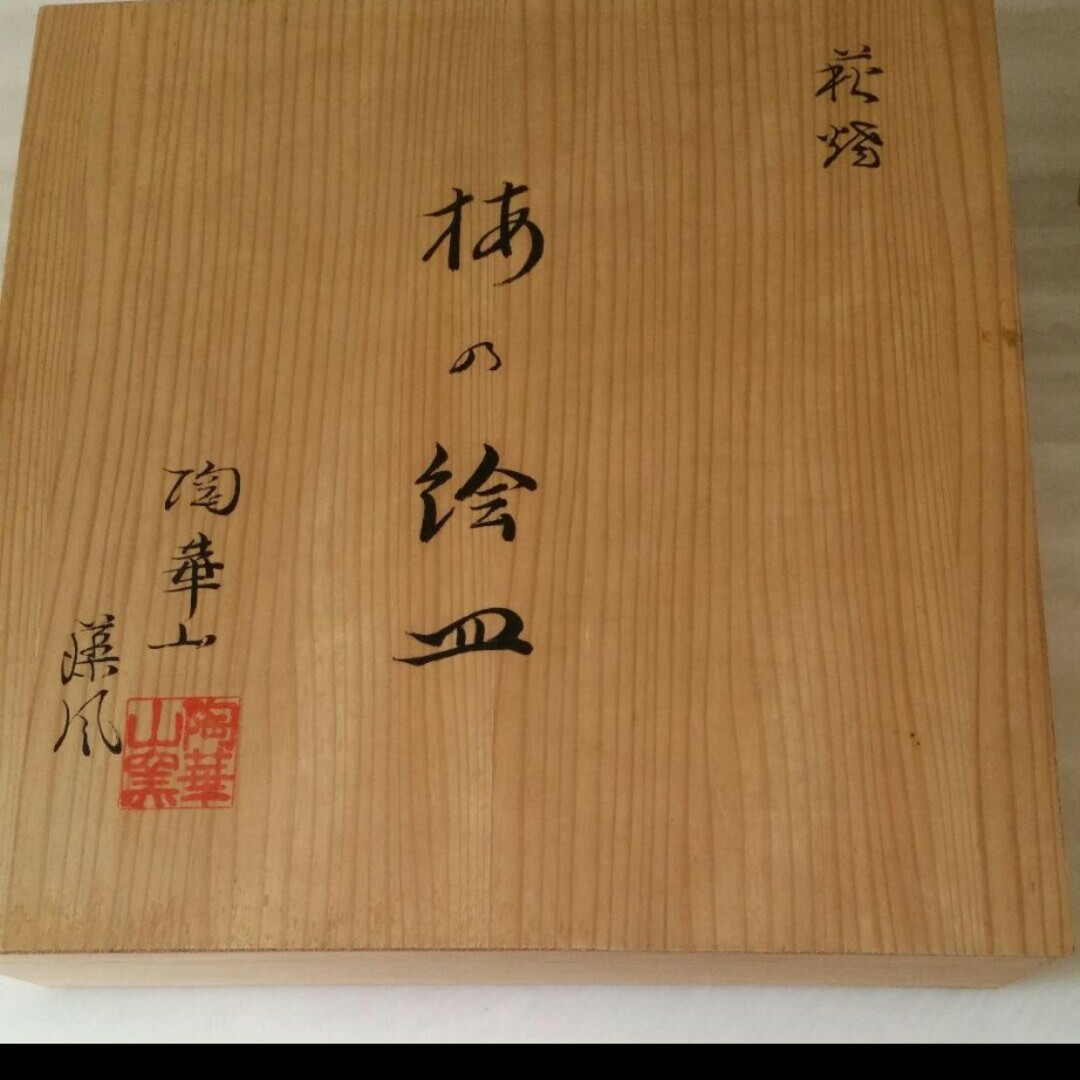 萩焼
梅の絵皿
陶華山
漢風
陶華山窯